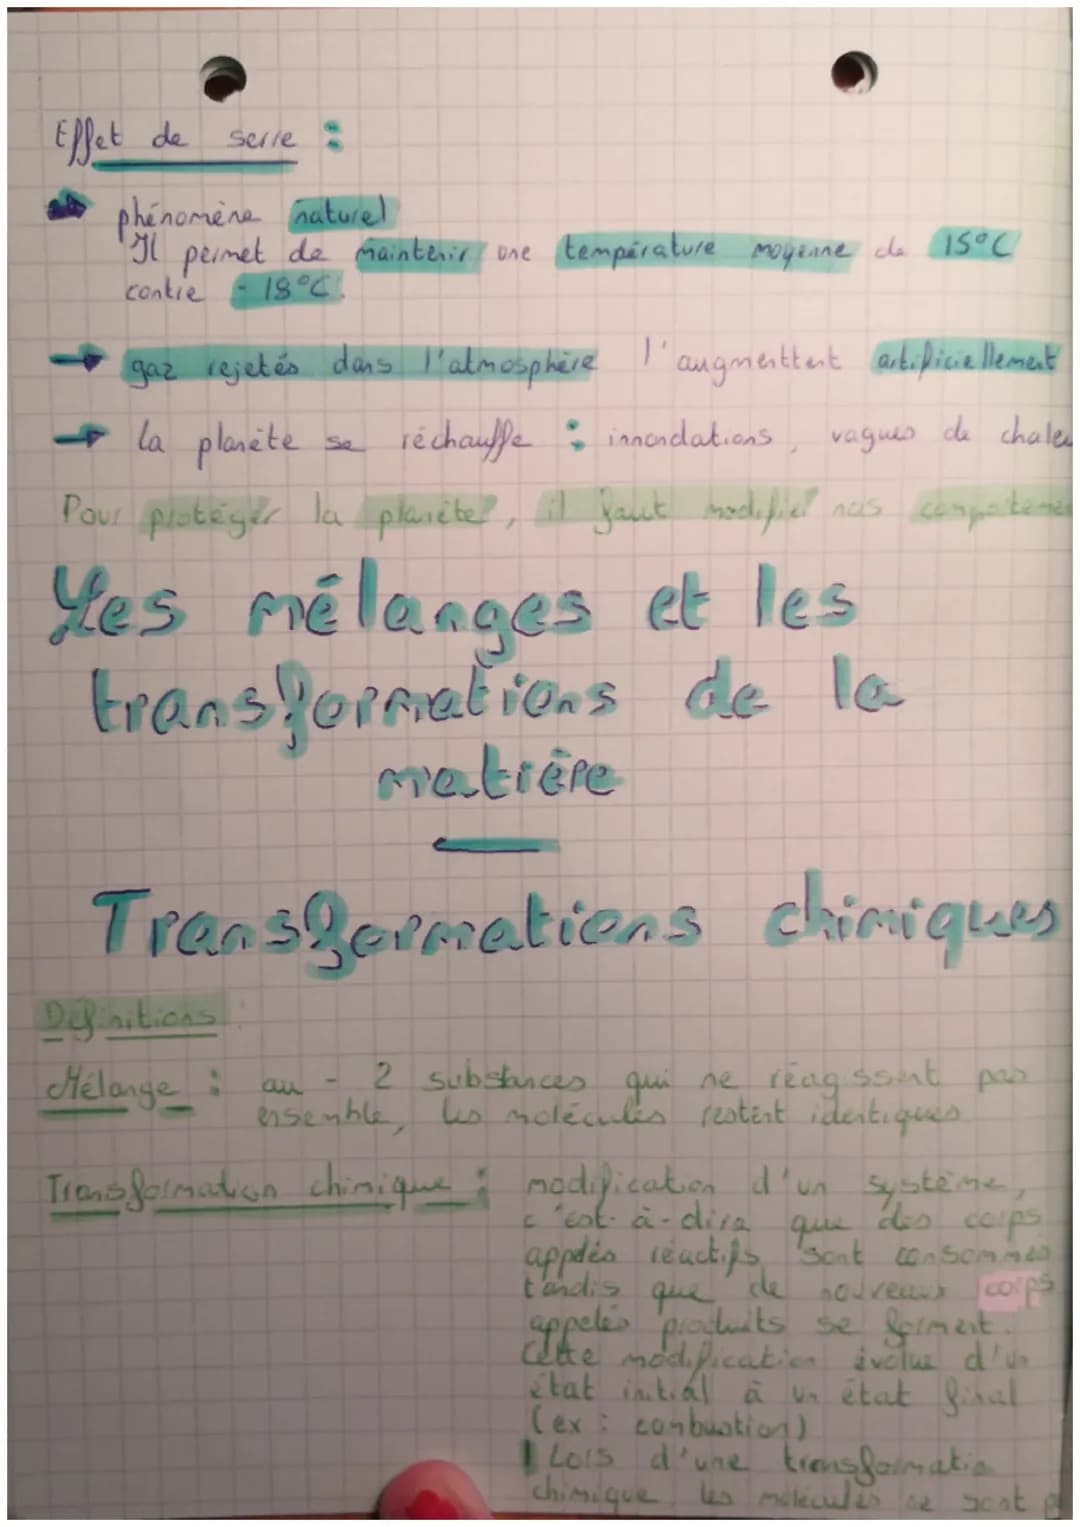 Effet de serre :
phénomène naturel
Il permet de maintenir une température moyenne de 15°C
contre - 18°C.
→ gaz rejetés dans l'atmosphère l'augmenttent artificiellement
→ la planète se réchauffe : innondations, vagues de chaleu
Pour protéger la planète, il faut modifier nos comportemen
Les mélanges et les
transformations de la
matière
Transformations chimiques
Définitions :
Mélange : au - 2 substances qui ne réagissent pas
ensemble, les molécules restent identiques
Transformation chimique : modification d'un système,
c'est-à-dire que des corps
appelés réactifs sont consommés
tandis que de nouveaux corps
appelés produits se forment.
Cette modification évolue d'un
état initial à un état final
(ex : combustion)
! Lors d'une transformatio
chimique, les molécules ne sont p